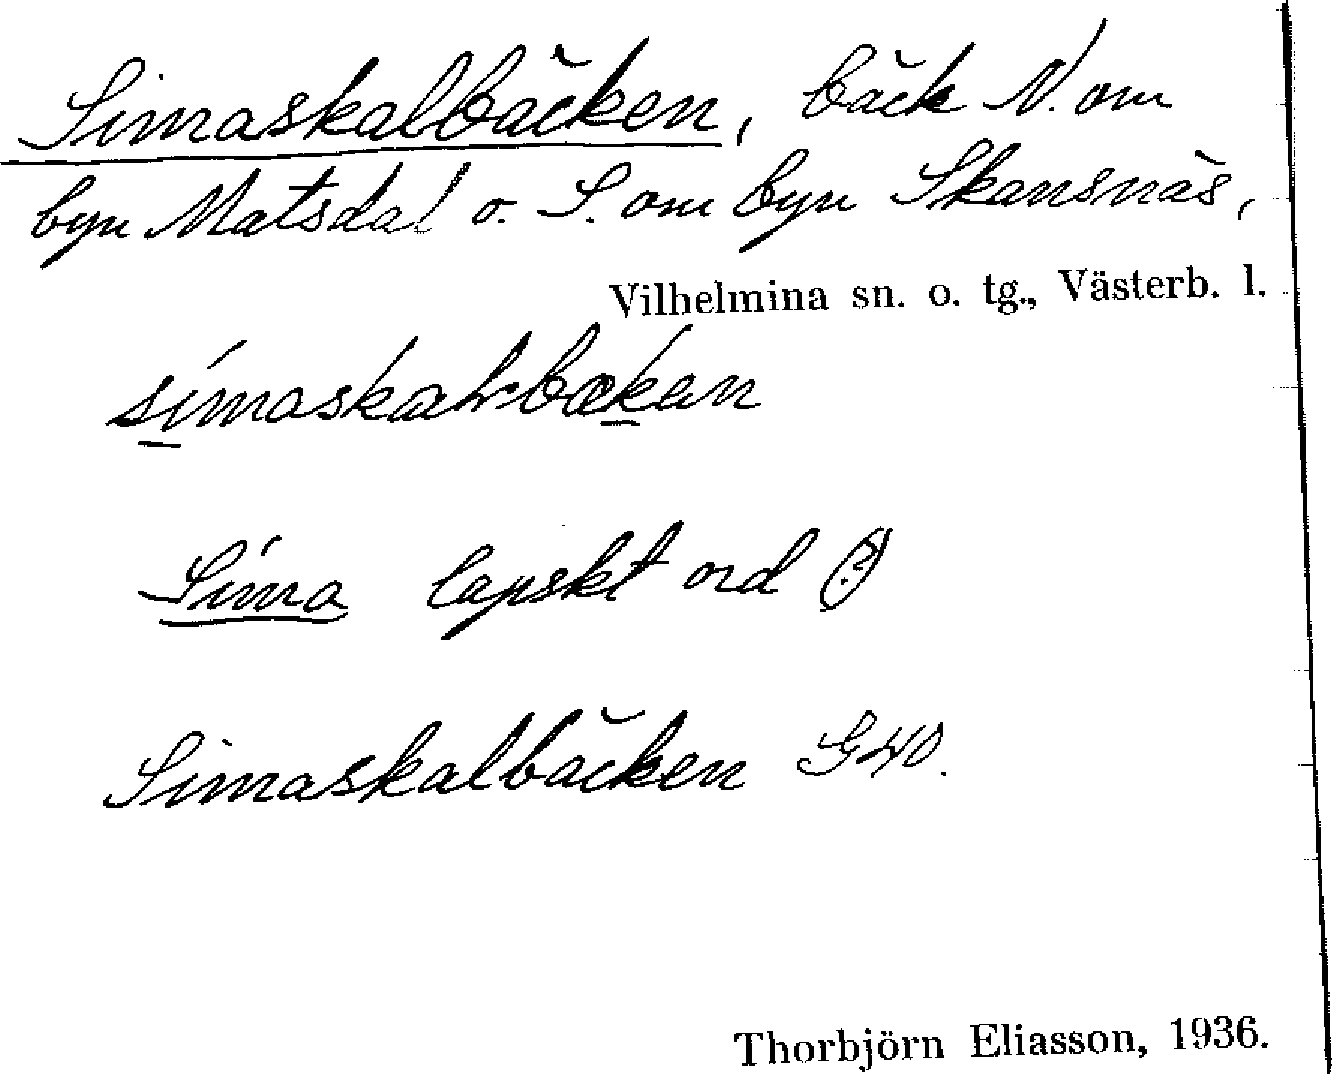 Simaskalbäcken, bäck N. om
byn Matsdal o. S. om byn Skansnäs,
Vilhelmina sn. o. tg., Västerb. l.
símaskalˑbækɐn
Síma lapskt ord (?)
Simaskalbäcken G40.
Thorbjörn Eliasson, 1936.